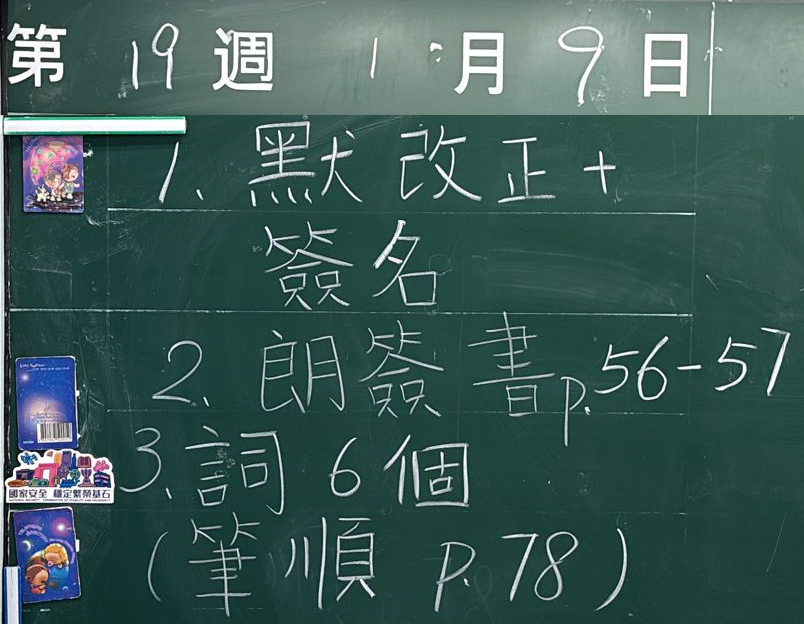 第 19 週 1 月 9 日
1. 默 改正+
簽名
2. 朗簽 書p.56-57
3. 詞 6個
(筆順 p.78)
國家安全 穩定繁榮基石
NATIONAL SECURITY FOUNDATION OF STABILITY AND PROSPERITY